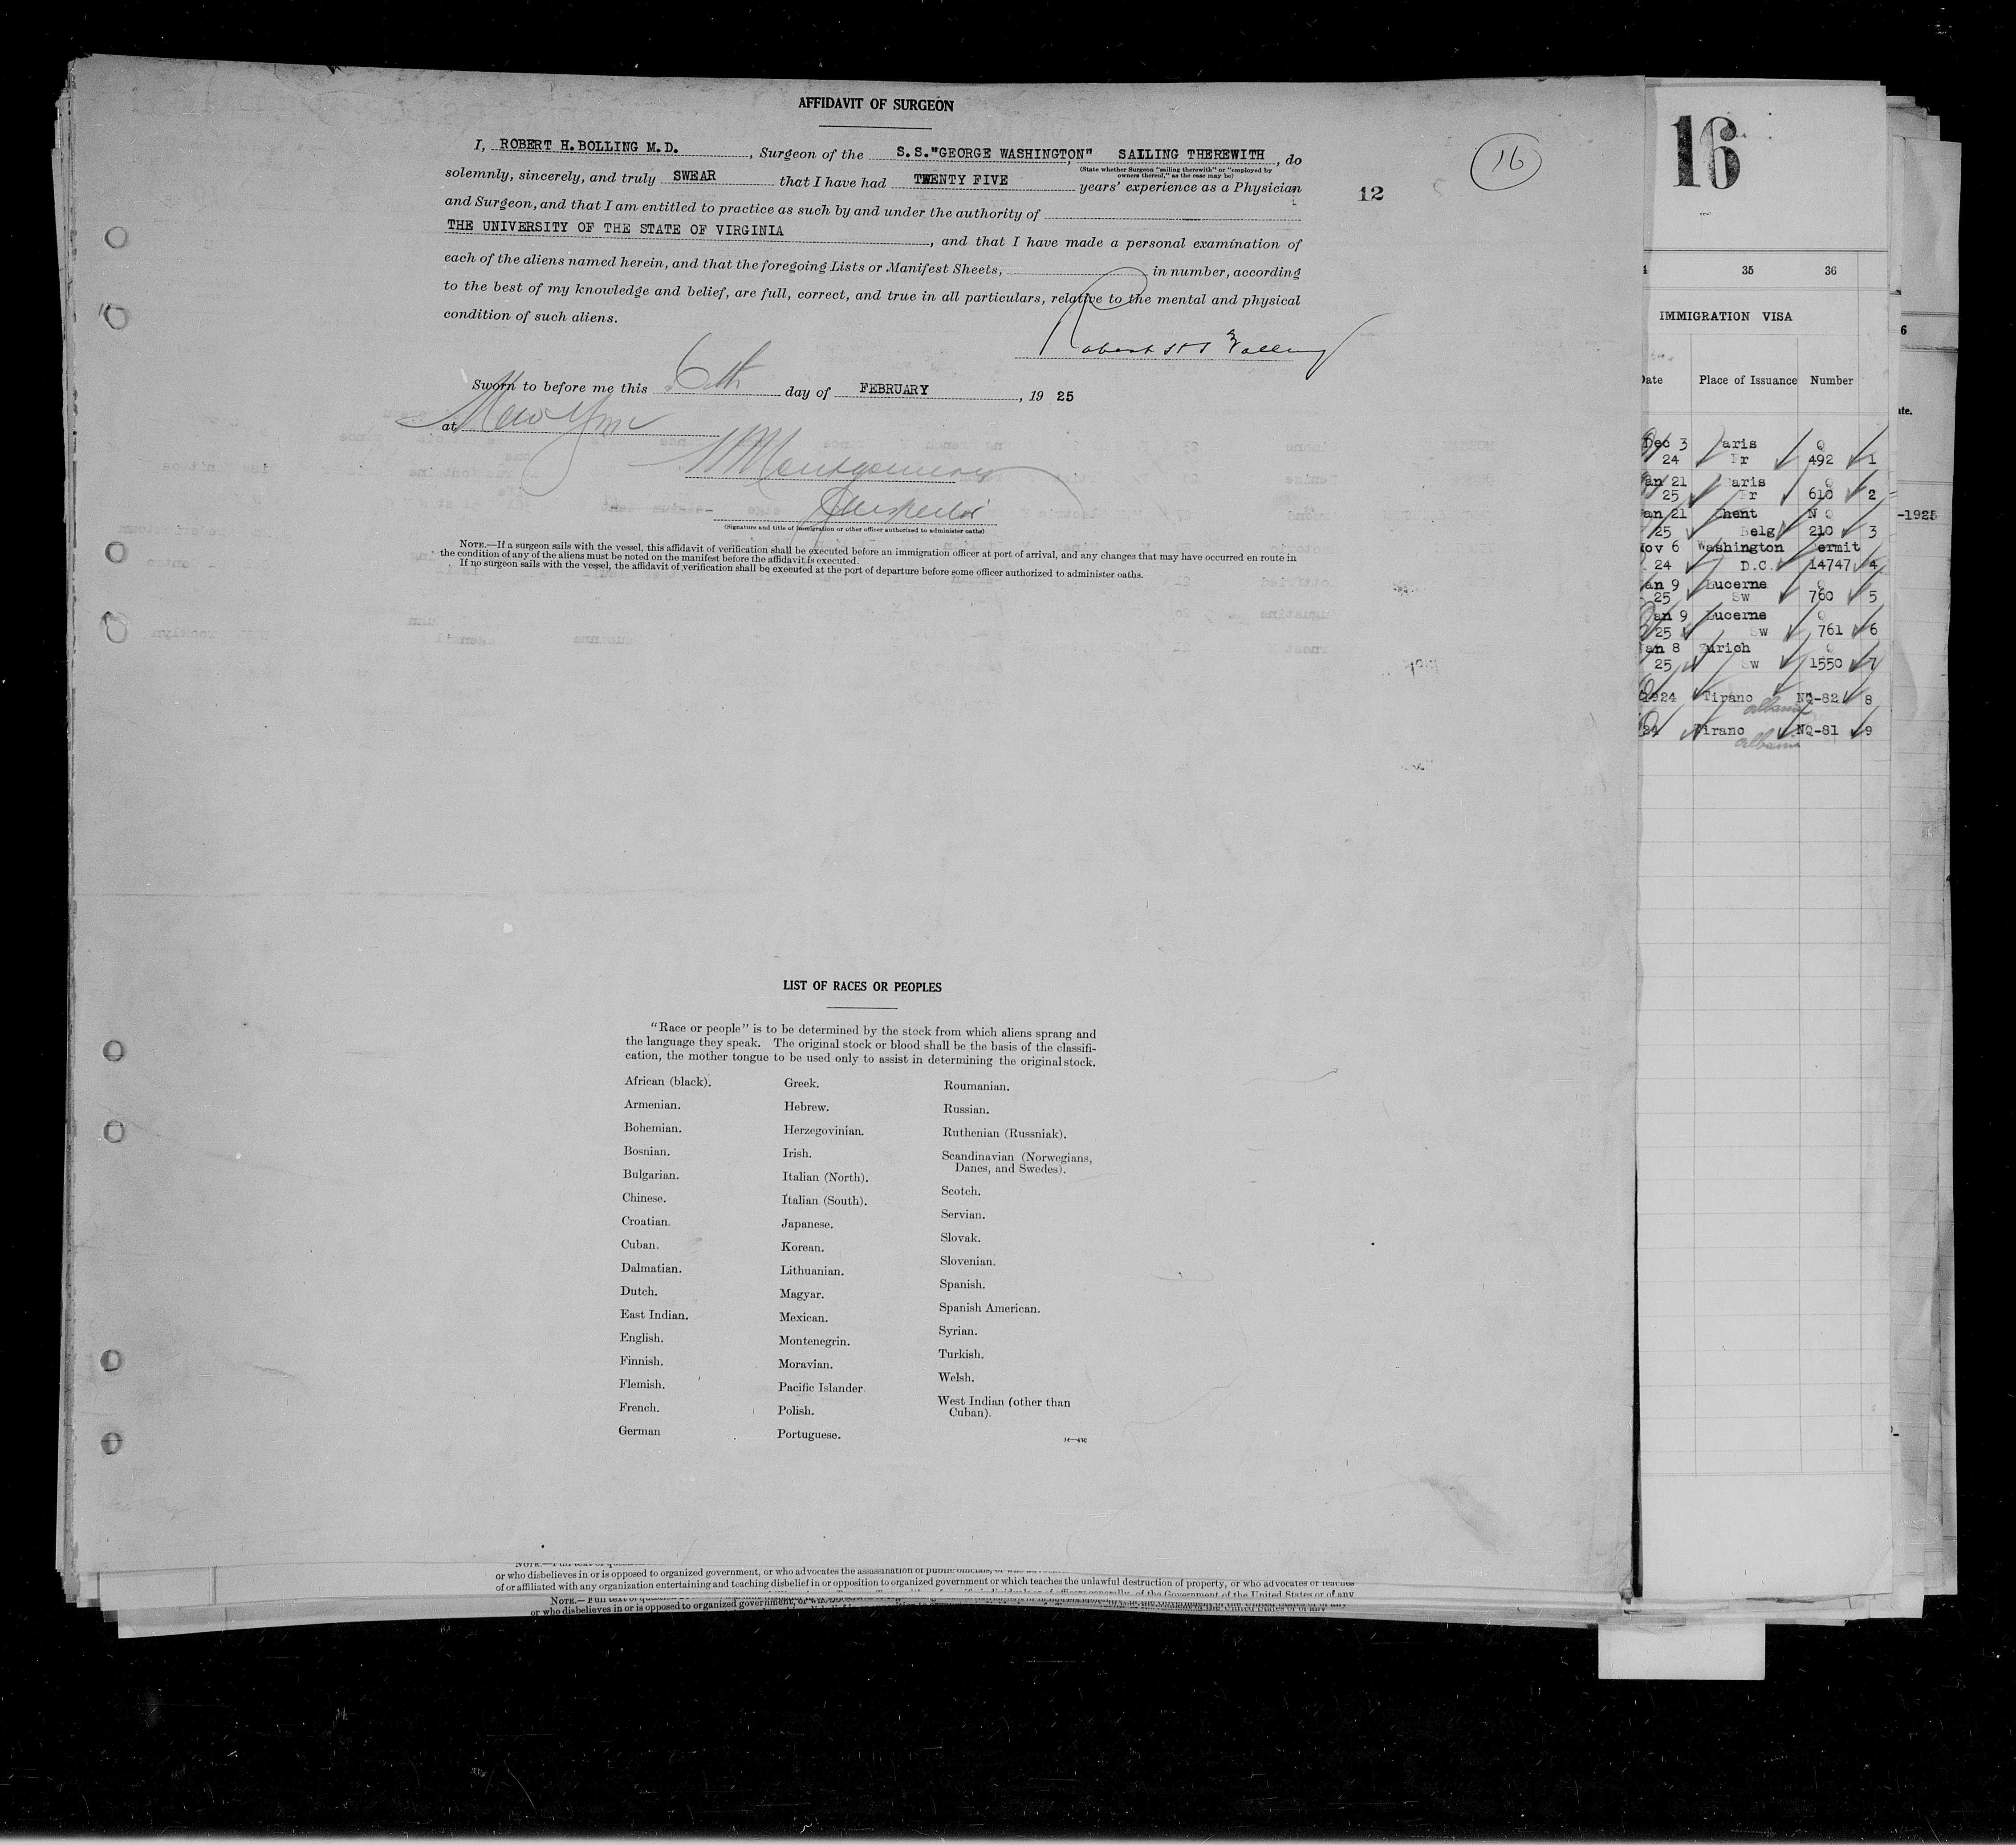 AFFIDAVIT OF SURGEON
I, ROBERT H. BOLLING M.D., Surgeon of the S.S."GEORGE WASHINGTON", SAILING THEREWITH, do
(State whether Surgeon "sailing therewith" or "employed by
owners thereof," as the case may be)
solemnly, sincerely, and truly SWEAR that I have had TWENTY FIVE years' experience as a Physician
and Surgeon, and that I am entitled to practice as such by and under the authority of
THE UNIVERSITY OF THE STATE OF VIRGINIA, and that I have made a personal examination of
each of the aliens named herein, and that the foregoing Lists or Manifest Sheets, in number, according
to the best of my knowledge and belief, are full, correct, and true in all particulars, relative to the mental and physical
condition of such aliens.
16
12
Sworn to before me this 6th day of FEBRUARY, 19 25
at New York
Montgomery
Inspector
(Signature and title of immigration or other officer authorized to administer oaths)
NOTE.—If a surgeon sails with the vessel, this affidavit of verification shall be executed before an immigration officer at port of arrival, and any changes that may have occurred en route in
the condition of any of the aliens must be noted on the manifest before the affidavit is executed.
If no surgeon sails with the vessel, the affidavit of verification shall be executed at the port of departure before some officer authorized to administer oaths.
LIST OF RACES OR PEOPLES
"Race or people" is to be determined by the stock from which aliens sprang and
the language they speak. The original stock or blood shall be the basis of the classifi-
cation, the mother tongue to be used only to assist in determining the original stock.
African (black).
Armenian.
Bohemian.
Bosnian.
Bulgarian.
Chinese.
Croatian.
Cuban.
Dalmatian.
Dutch.
East Indian.
English.
Finnish.
Flemish.
French.
German
Greek.
Hebrew.
Herzegovinian.
Irish.
Italian (North).
Italian (South).
Japanese.
Korean.
Lithuanian.
Magyar.
Mexican.
Montenegrin.
Moravian.
Pacific Islander.
Polish.
Portuguese.
Roumanian.
Russian.
Ruthenian (Russniak).
Scandinavian (Norwegians,
Danes, and Swedes).
Scotch.
Servian.
Slovak.
Slovenian.
Spanish.
Spanish American.
Syrian.
Turkish.
Welsh.
West Indian (other than
Cuban).
or who disbelieves in or is opposed to organized government, or who advocates the assassination of public officials,
of or affiliated with any organization entertaining and teaching disbelief in or opposition to organized government or which teaches the unlawful destruction of property, or who advocates or teaches
NOTE.— Full text of
or who disbelieves in or is opposed to organized government,
16
35 36
IMMIGRATION VISA
Place of Issuance Number
Dec 3 aris Q
24 Fr 492 1
an 21 aris Q
25 Fr 610 2
an 21 Ghent N Q
25 Belg 210 3
ov 6 Washington ermit
24 D.C. 14747 4
an 9 Lucerne Q
25 Sw 760 5
an 9 Lucerne Q
25 Sw 761 6
an 8 Zurich Q
25 Sw 1550 7
1924 Tirano NQ-82 8
albania
24 Tirano NQ-81 9
albania
-1925